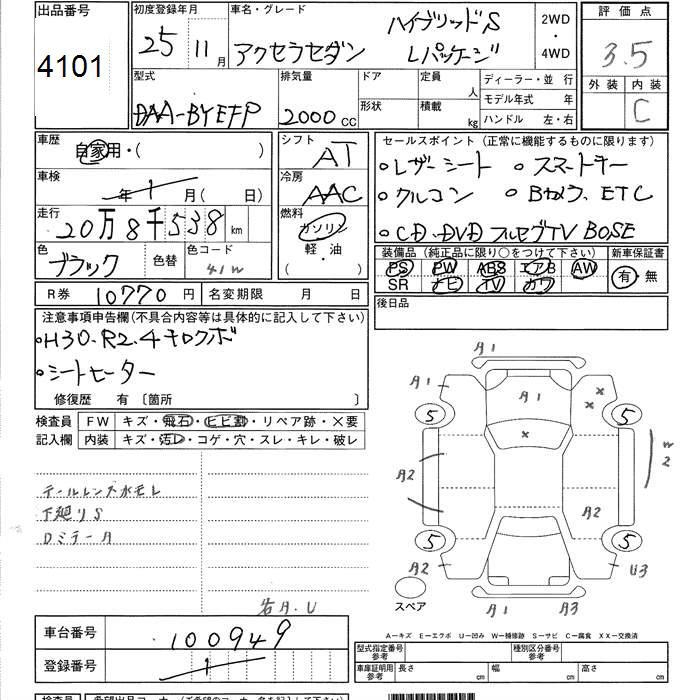 出品番号
4101
初度登録年月
25 11月
車名・グレード
アクセラセダン
ハイブリッドS
Lパッケージ
2WD
・
4WD
評価点
3.5
外装 内装
C
型式
DAA-BYEFP
排気量
2000 CC
ドア
形状
定員
人
積載
kg
ディーラー・並 行
モデル年式 年
ハンドル 左・右
車歴
自家用・( )
車検
年 月( 日)
走行
20万8千538 km
色
ブラック
色替
色コード
41W
シフト
AT
冷房
AAC
燃料
ガソリン
軽・油
( ・ )
セールスポイント (正常に機能するものに限ります)
○レザーシート ○スマートキー
○クルコン ○Bカメラ、ETC
○CD、DVD フルセグTV BOSE
装備品 (純正品に限り○をつけて下さい)
PS PW ABS エアB AW
SR ナビ TV カワ
新車保証書
有・無
後日品
R券 10770 円
名変期限 月 日
注意事項申告欄(不具合内容等は具体的に記入して下さい)
○H30.R2.4キロクボ
○シートヒーター
修復歴 有 〔箇所 〕
検査員
記入欄
FW キズ・飛石・ヒビ割・リペア跡・×要
内装 キズ・汚レ・コゲ・穴・スレ・キレ・破レ
テールレンズ水モレ
下廻りS
Dミラー A
各A.U
車台番号
100949
登録番号
A1
A1
×
×
×
5
5
A2
W2
A2
5
5
A2
U3
A1
A3
スペア
A-キズ E-エクボ U-凹み W-補修跡 S-サビ C-腐食 XX-交換済
型式指定番号
参考
種別区分番号
参考
車庫証明用
参考
長さ cm
幅 cm
高さ cm